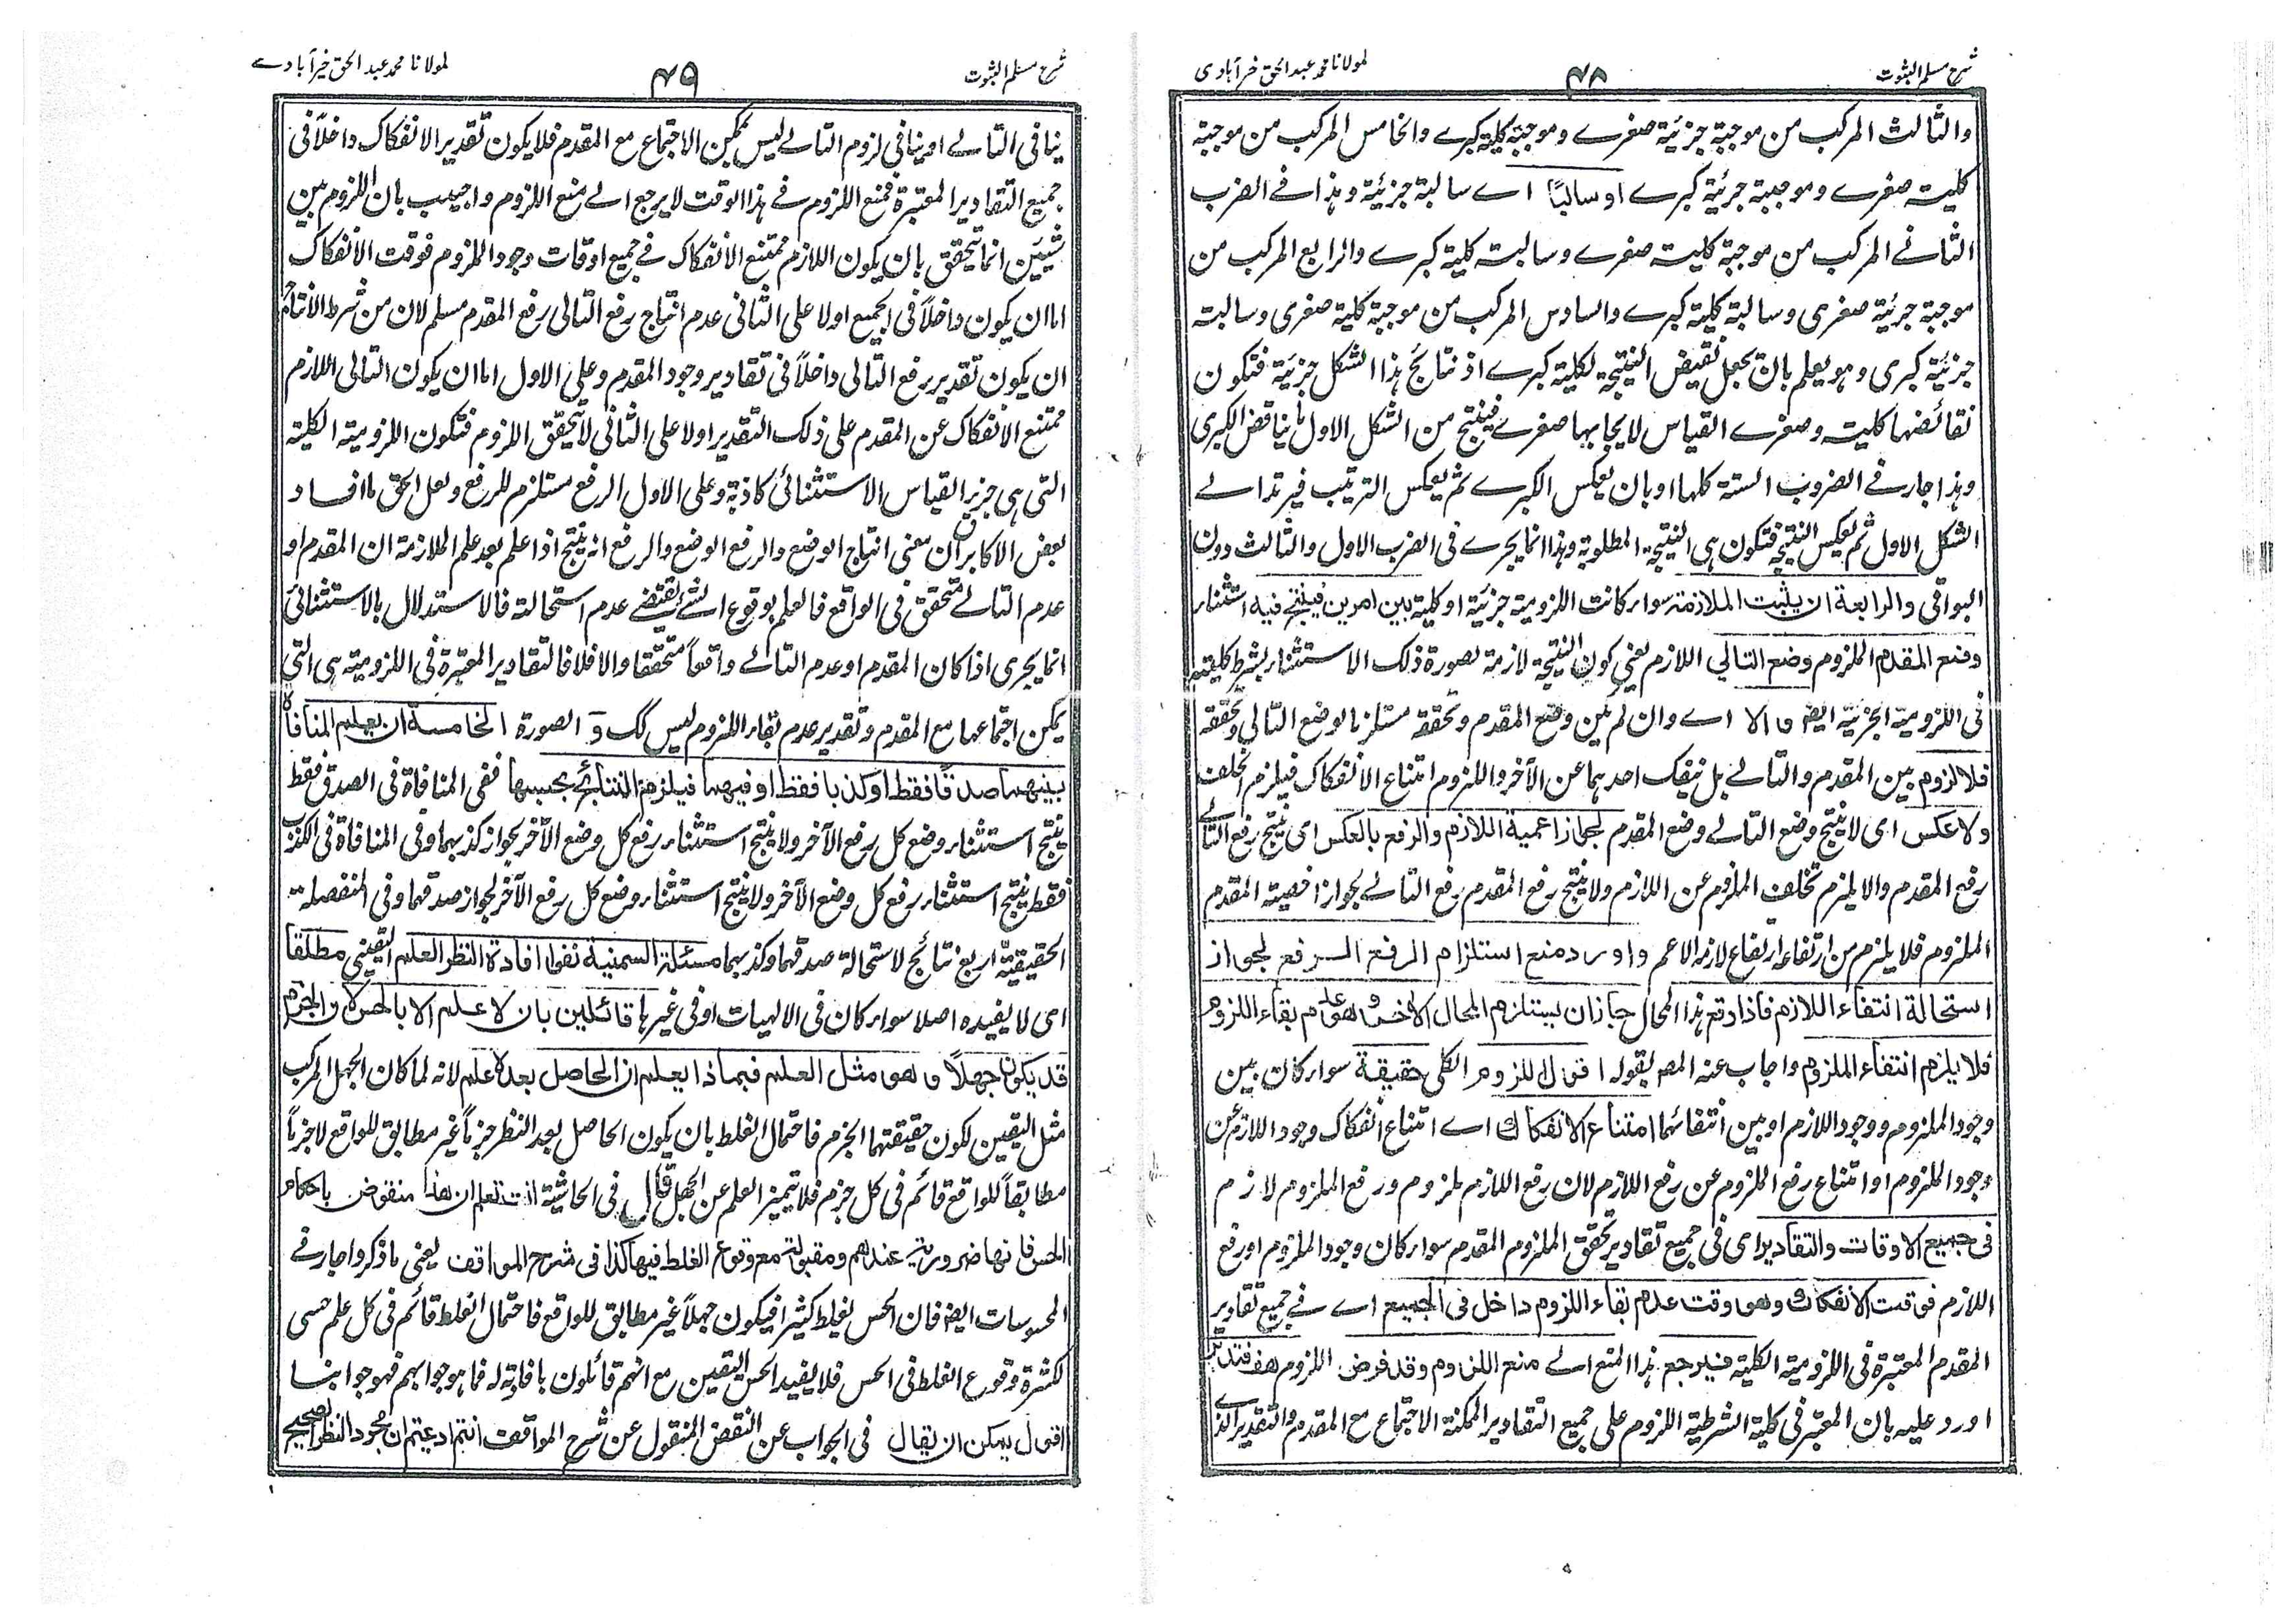 شرح مسلم الثبوت
۴۸
لمولانا محمد عبد الحق خيرآبادى
والثالث المركب من موجبة جزئية صغرے وموجبة كلية كبرے والخامس المركب من موجبة
كلية صغرے وموجبة جزئية كبرے او سالبًا اے سالبة جزئية وهذا فے الضرب
الثانے المركب من موجبة كلية صغرے وسالبة كلية كبرے والرابع المركب من
موجبة جزئية صغرى وسالبة كلية كبرے والسادس المركب من موجبة كلية صغرى وسالبة
جزئية كبرى وهو يعلم بان يجعل نقيض النتيجة لكلية كبرے اذ نتائج هذا الشكل جزئية فتكون
نقائضها كلية وصغرے القياس لايجابها صغرے فينتج من الشكل الاول ما يناقض الكبرى
وهذا جار فے الضروب الستة كلها او بان يعكس الكبرے ثم يعكس الترتيب فيرتد الے
الشكل الاول ثم يعكس النتيجة فتكون هى النتيجة المطلوبة وهذا انما يجرے فى الضرب الاول والثالث دون
البواقى والرابعة ان يثبت الملازمة سواء كانت اللزومية جزئية او كلية بين امرين فينتج فيه استثناء
وضع المقدم الملزوم وضع التالي اللازم يعني كون النتيجة لازمة بصورة ذلك الاستثناء بشرط كليته
فى اللزومية الجزئية ايضا والا اے وان لم يكن وضع المقدم وتحققه مستلزما لوضع التالى وتحققه
فلا لزوم بين المقدم والتالے بل ينفك احدهما عن الآخر واللزوم امتناع الانفكاك فيلزم الخلف
ولا عكس اى لا ينتج وضع التالے وضع المقدم لجواز اعمية اللازم والرفع بالعكس اى ينتج رفع التالے
رفع المقدم والا يلزم تخلف الملزوم عن اللازم ولا ينتج رفع المقدم رفع التالے لجواز اخصية المقدم
الملزوم فلا يلزم من ارتفاعه ارتفاع لازمه الاعم واورد منع استلزام الرفع الرفع لجواز
استحالة انتفاء اللازم فاذا وقع هذا المحال جاز ان يستلزم المحال الاخر وهو عدم بقاء اللزوم
فلا يلزم انتفاء الملزوم واجاب عنه المص بقوله اقول اللزوم الكلى حقيقة سواء كان بين
وجود الملزوم ووجود اللازم او بين انتفائهما امتناع الانفكاك اے امتناع انفكاك وجود اللازم عن
وجود الملزوم او امتناع رفع الملزوم عن رفع اللازم لان رفع اللازم ملزوم ورفع الملزوم لازم
فى جميع الاوقات والتقادير اى فى جميع تقادير تحقق الملزوم المقدم سواء كان وجود الملزوم او رفع
اللازم فوقت الانفكاك وهو وقت عدم بقاء اللزوم داخل فى الجميع اے فے جميع تقادير
المقدم المعتبرة فى اللزومية الكلية فيرجع هذا المنع الے منع اللزوم وقد فرض اللزوم هف فتدبر
اورد عليه بان المعتبر فى كلية الشرطية اللزوم على جميع التقادير الممكنة الاجتماع مع المقدم والتقدير الذے
شرح مسلم الثبوت
۴۹
لمولانا محمد عبد الحق خيرآبادے
ينافى التالے او ينافى لزوم التالے ليس ممكن الاجتماع مع المقدم فلا يكون تقدير الانفكاك داخلاً فى
جميع التقادير المعتبرة فمنع اللزوم فے هذا الوقت لا يرجع الے منع اللزوم واجيب بان اللزوم بين
شيئين انما يتحقق بان يكون اللازم ممتنع الانفكاك فے جميع اوقات وجود الملزوم فوقت الانفكاك
اما ان يكون داخلاً فى الجميع اولا على الثانى عدم انتاج رفع التالى رفع المقدم مسلم لان من شرط الانتاج
ان يكون تقدير رفع التالى داخلاً فى تقادير وجود المقدم وعلى الاول اما ان يكون التالى اللازم
ممتنع الانفكاك عن المقدم على ذلك التقدير اولا على الثانى لا يتحقق اللزوم فتكون اللزومية الكلية
التى هى جزء القياس الاستثنائى كاذبة وعلى الاول الرفع مستلزم للرفع ولعل الحق ما افاد
بعض الاكابر ان معنى انتاج الوضع والرفع الوضع والرفع انه ينتج اذا علم بعد علم الملازمة ان المقدم او
عدم التالے متحقق فى الواقع فالعلم بوقوع الشے يقتضے عدم استحالته فالاستدلال بالاستثنائى
انما يجرى اذا كان المقدم او عدم التالے واقعاً متحققا والا فلا فالتقادير المعتبرة فى اللزومية هى التى
يمكن اجتماعها مع المقدم وتقدير عدم بقاء اللزوم ليس كك و الصورة الخامسة ان يعلم المنافاة
بينهما صدقًا فقط او كذبا فقط او فيهما فيلزم النتائج بحسبها ففى المنافاة فى الصدق فقط
ينتج استثناء وضع كل رفع الآخر ولا ينتج استثناء رفع كل وضع الآخر لجواز كذبهما وفى المنافاة فى الكذب
فقط ينتج استثناء رفع كل وضع الآخر ولا ينتج استثناء وضع كل رفع الآخر لجواز صدقهما وفى المنفصلة
الحقيقية اربع نتائج لاستحالة صدقهما وكذبهما مسئلة السمنية نفوا افادة النظر العلم اليقيني مطلقا
اى لا يفيده اصلا سواء كان فى الالهيات او فى غيرها قائلين بان لا علم الا بالحس لان الجزم
قد يكون جهلاً وهو مثل العلم فبماذا يعلم ان الحاصل بعده علم لانه لما كان الجهل المركب
مثل اليقين لكون حقيقتهما الجزم فاحتمال الغلط بان يكون الحاصل بعد النظر جزماً غير مطابق للواقع لا جزماً
مطابقاً للواقع قائم فى كل جزم فلا يتميز العلم عن الجهل قال فى الحاشية انت تعلم ان هذا منقوض باحكام
الحس فانها ضرورية عندهم ومقبولة مع وقوع الغلط فيها كذا فى شرح المواقف يعنى ما ذكروا جار فے
المحسوسات ايضا فان الحس يغلط كثيرا فيكون جهلاً غير مطابق للواقع فاحتمال الغلط قائم فى كل علم حسى
لكثرة وقوع الغلط فى الحس فلا يفيد الحس اليقين مع انهم قائلون بافادته له فما هو جوابهم فهو جوابنا
اقول يمكن ان يقال فى الجواب عن النقض المنقول عن شرح المواقف انتم ادعيتم ان مجرد النظر الصحيح